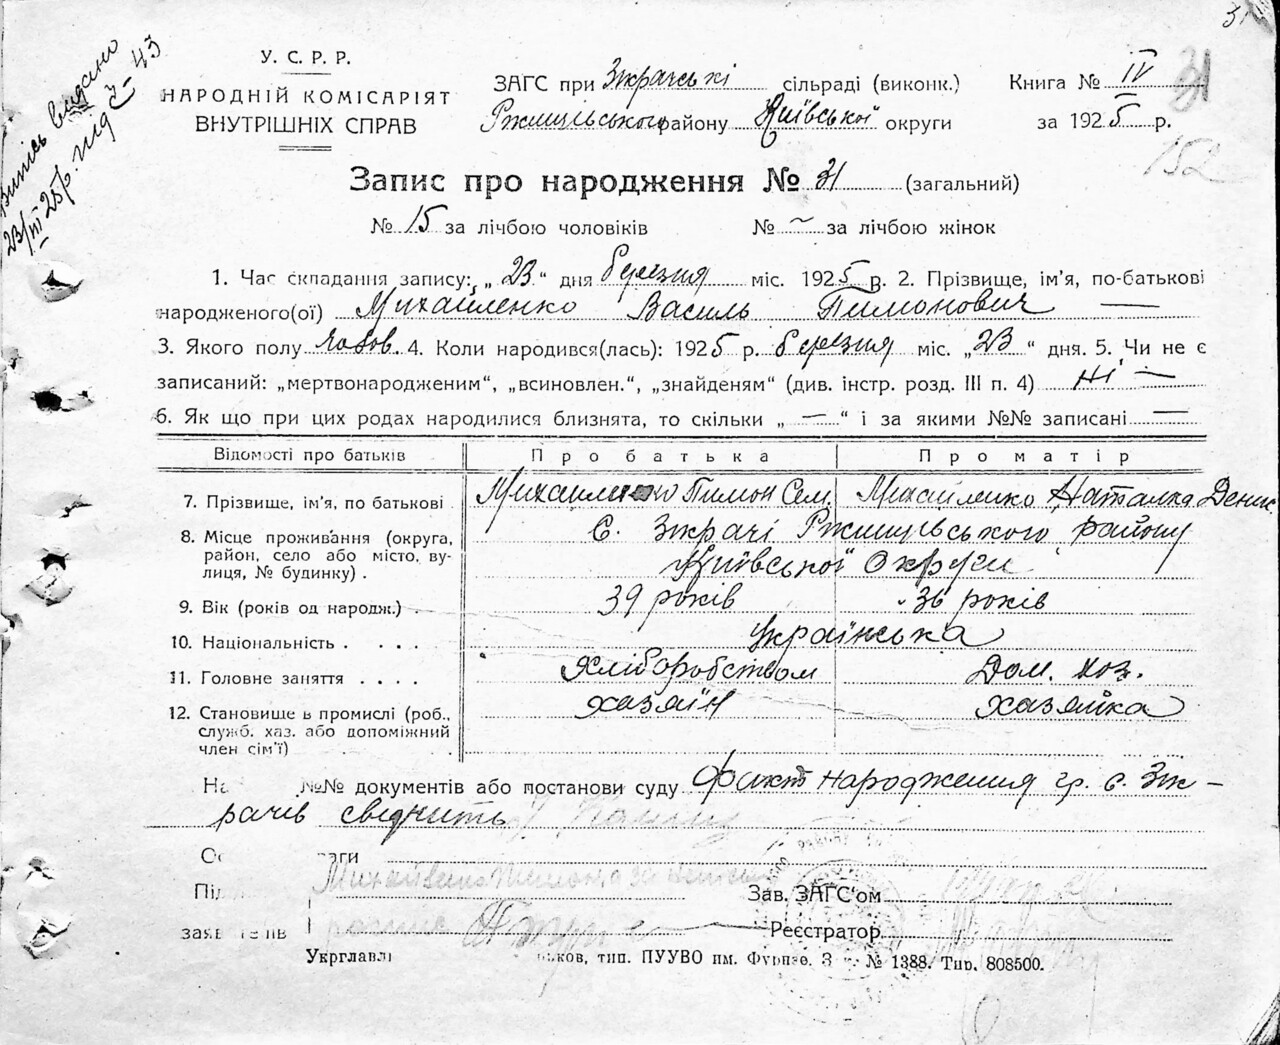 31
У. С. Р. Р.
НАРОДНІЙ КОМІСАРІЯТ
ВНУТРІШНІХ СПРАВ
Випись видано
23/III 25 р. під № 43
ЗАГС при Зкрачські сільраді (виконк.)
Ржищівського району Київської округи
Книга № IV
за 1925 р.
31
152
Запис про народження № 31 (загальний)
№ 15 за лічбою чоловіків № — за лічбою жінок
1. Час складання запису: „23“ дня березня міс. 1925 р. 2. Прізвище, ім’я, по-батькові
народженого(ої) Михайленко Василь Тимонович —
3. Якого полу чолов. 4. Коли народився(лась): 1925 р. березня міс. „23“ дня. 5. Чи не є
записаний: „мертвонародженим“, „всиновлен.“, „знайденям“ (див. інстр. розд. III п. 4) ні —
6. Як що при цих родах народилися близнята, то скільки „—“ і за якими №№ записані —
Відомості про батьків Про батька Про матір
7. Прізвище, ім’я, по батькові Михайленко Тимон Сем. Михайленко Наталка Денис.
8. Місце проживання (округа, с. Зікрачі Ржищівського району
район, село або місто, ву- Київської Округи
лиця, № будинку) .
9. Вік (років од народж.) . 39 років 36 років
10. Національність . . . . українська
11. Головне заняття . . . . Хліборобством Дом. хоз.
12. Становище в промислі (роб., хазяїн хазяйка
служб. хаз. або допоміжний
член сім’ї)
На №№ документів або постанови суду Факт народження гр. с. Зік-
рачів свідчить
Михайленко Тимон а за
Зав. ЗАГС’ом
Реєстратор
Укрглавлі ьков, тип. ПУУВО ім. Фрунзе. З № 1388. Тир. 808500.